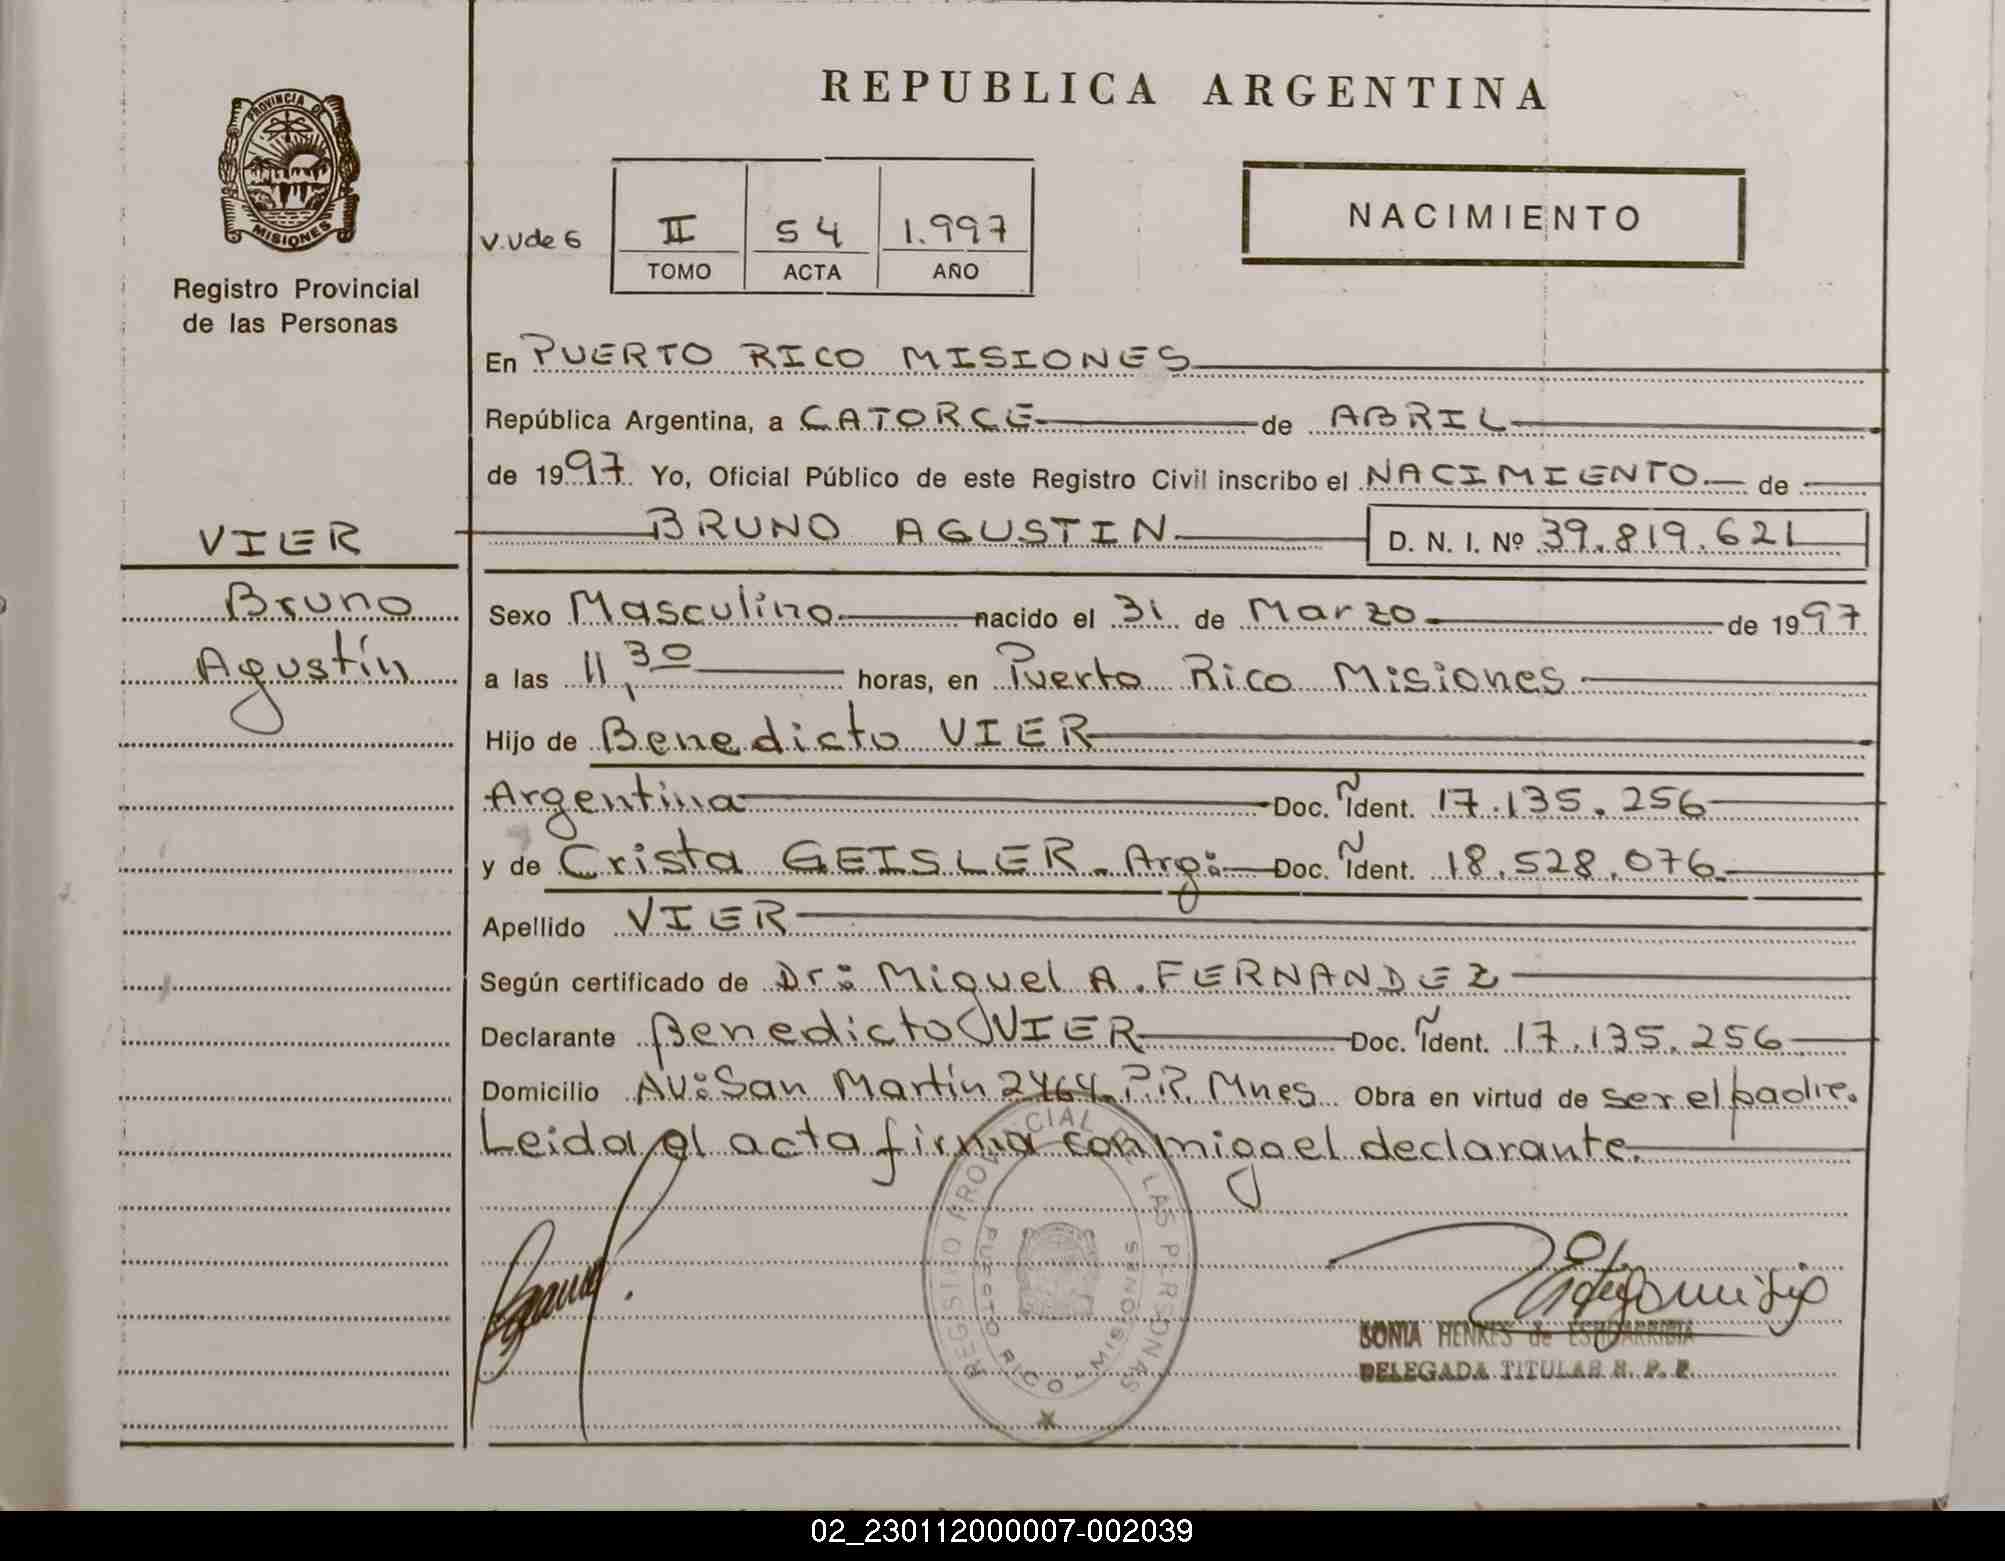 REPUBLICA ARGENTINA
PROVINCIA DE
MISIONES
Registro Provincial
de las Personas
V.Ude 6
II 54 1.997
TOMO ACTA AÑO
NACIMIENTO
En PUERTO RICO MISIONES
República Argentina, a CATORCE de ABRIL
de 1997. Yo, Oficial Público de este Registro Civil inscribo el NACIMIENTO de
BRUNO AGUSTIN D. N. I. Nº 39.819.621
VIER
Bruno
Agustín
Sexo Masculino nacido el 31 de Marzo de 1997
a las 11,30 horas, en Puerto Rico Misiones
Hijo de Benedicto VIER
Argentina Doc. Ident. 17.135.256
y de Crista GEISLER. Arg: Doc. Ident. 18.528.076.
Apellido VIER
Según certificado de Dr: Miguel A. FERNANDEZ
Declarante Benedicto VIER Doc. Ident. 17.135.256
Domicilio AV: San Martín 2464. P.R. Mnes. Obra en virtud de ser el padre.
Leida el acta firma conmigo el declarante.
REGISTRO PROVINCIAL DE LAS PERSONAS
PUERTO RICO - MISIONES
SONIA HENKES de ESTIGARRIBIA
DELEGADA TITULAR R. P. P.
02_230112000007-002039